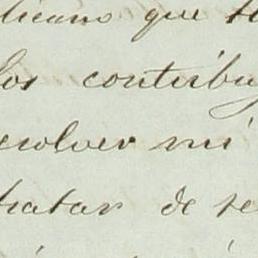 licano que
los contribu
esolver mi
tratar de se